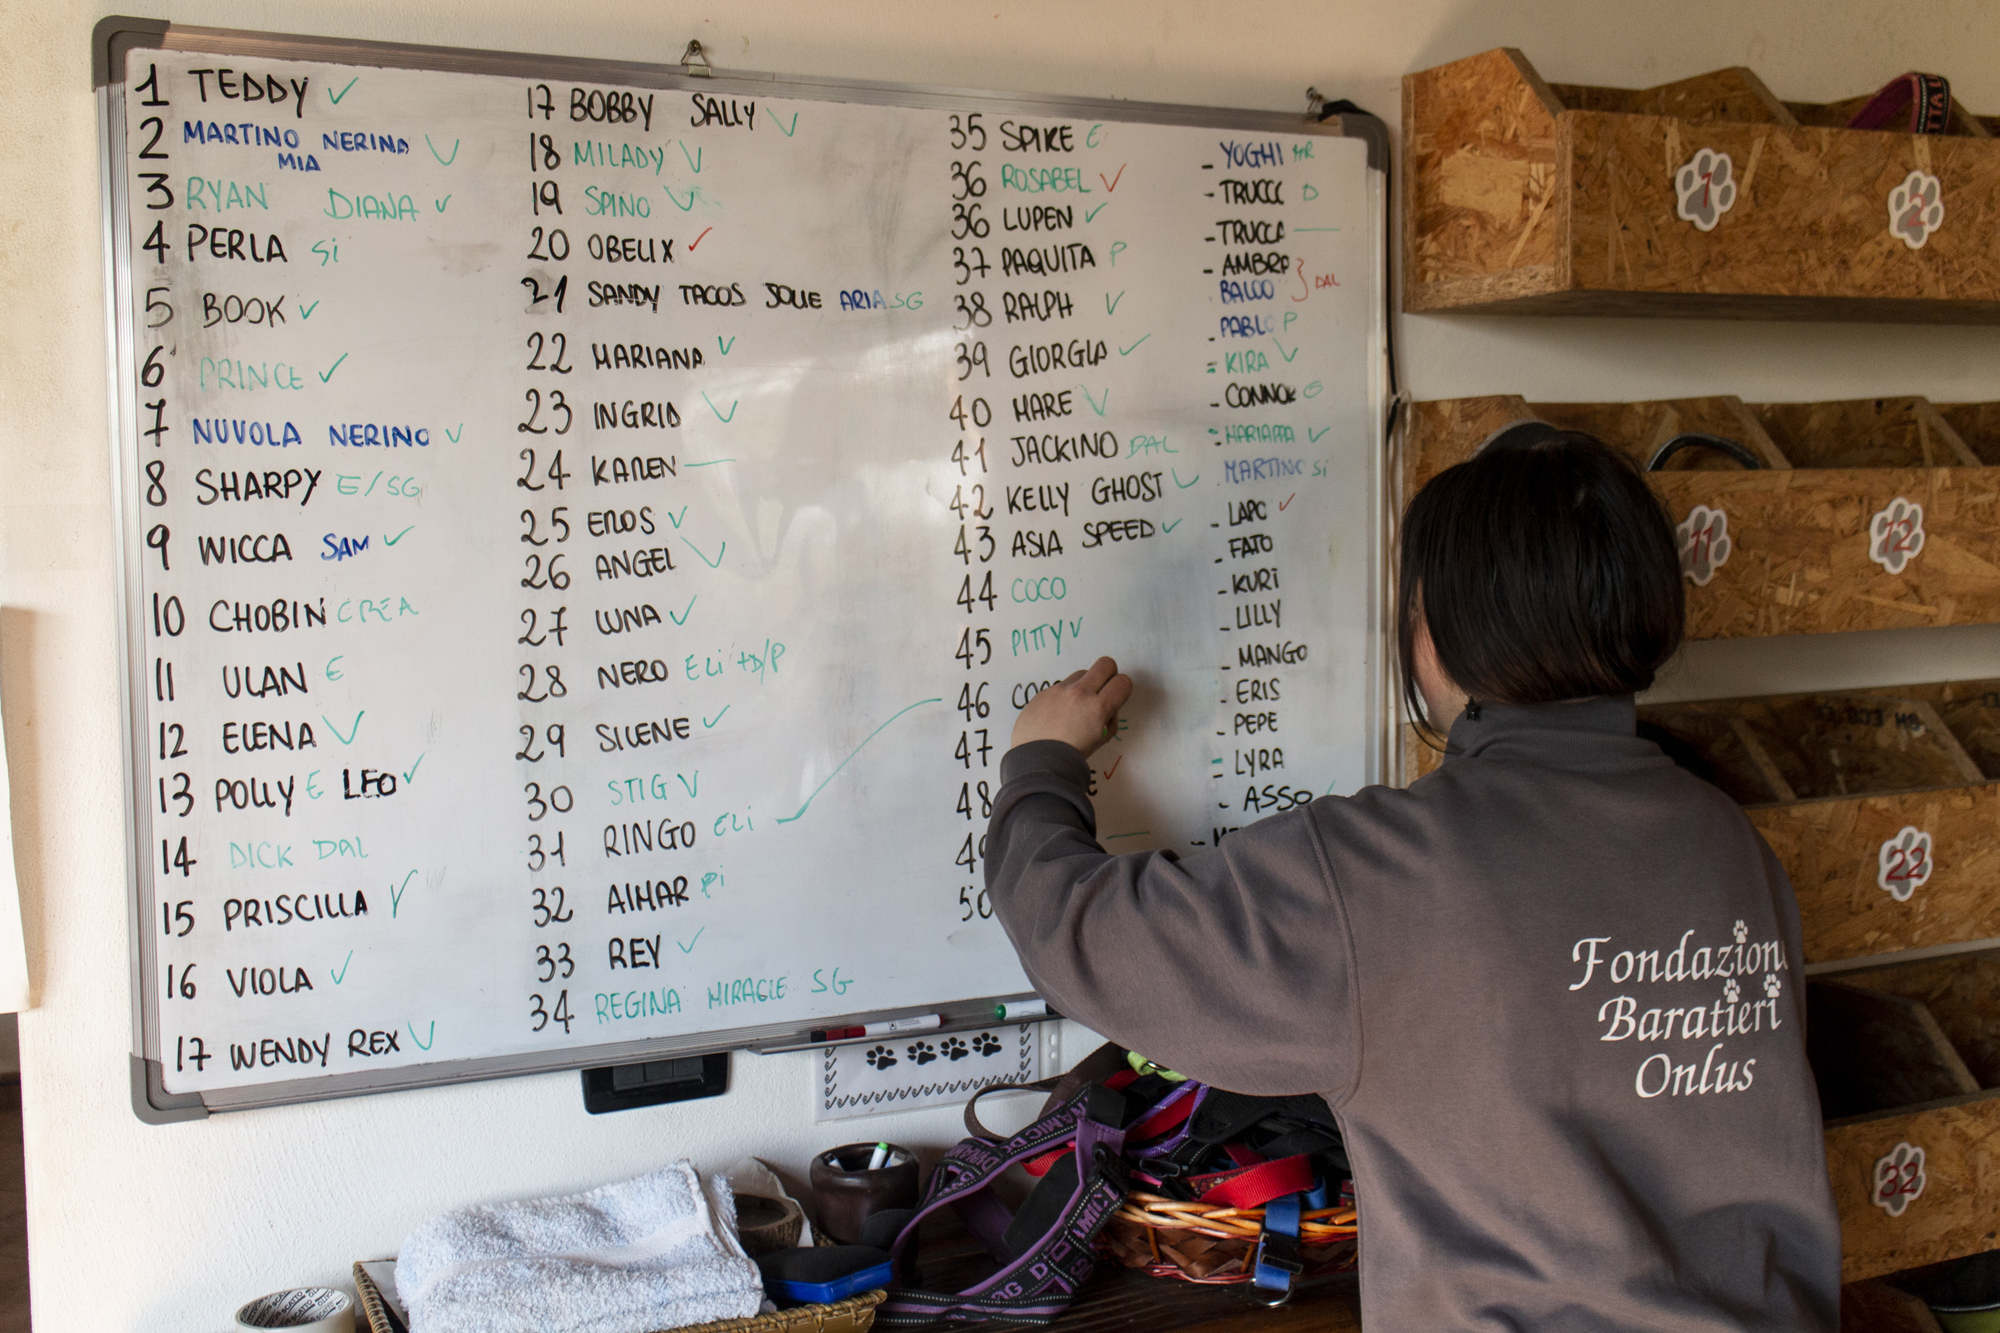 1 TEDDY ✓
2 MARTINO NERINA V
MIA
3 RYAN DIANA ✓
4 PERLA Si
5 BOOK ✓
6 PRINCE ✓
7 NUVOLA NERINO V
8 SHARPY E/SG
9 WICCA SAM ✓
10 CHOBIN CREA
11 ULAN E
12 ELENA V
13 POLLY E LEO ✓
14 DICK DAL
15 PRISCILLA V
16 VIOLA ✓
17 WENDY REX V
17 BOBBY SALLY V
18 MILADY V
19 SPINO V
20 OBELIX ✓
21 SANDY TACOS JOLIE ARIA SG
22 MARIANA V
23 INGRID V
24 KAREN —
25 EROS V
26 ANGEL V
27 LUNA ✓
28 NERO ELi +D/P
29 SILENE ✓
30 STIG V
31 RINGO ELi
32 AIMAR Pi
33 REY ✓
34 REGINA MIRACLE SG
35 SPIKE E
36 ROSABEL ✓
36 LUPEN ✓
37 PAQUITA P
38 RALPH V
39 GIORGIA ✓
40 MARE V
41 JACKINO DAL
42 KELLY GHOST V
43 ASIA SPEED ✓
44 COCO
45 PITTY V
46
47 E
48 E ✓
50
- YOGHI
- TRUCCC D
- TRUCCA —
- AMBRA
BALOO } DAL
- PABLO P
= KIRA V
- CONNOR
- MARIANNA ✓
MARTINO Si
- LAPO ✓
- FATO
- KURi
- LILLY
- MANGO
- ERIS
- PEPE
= LYRA
- ASSO
1
2
11
12
22
32
Fondazion
Baratieri
Onlus